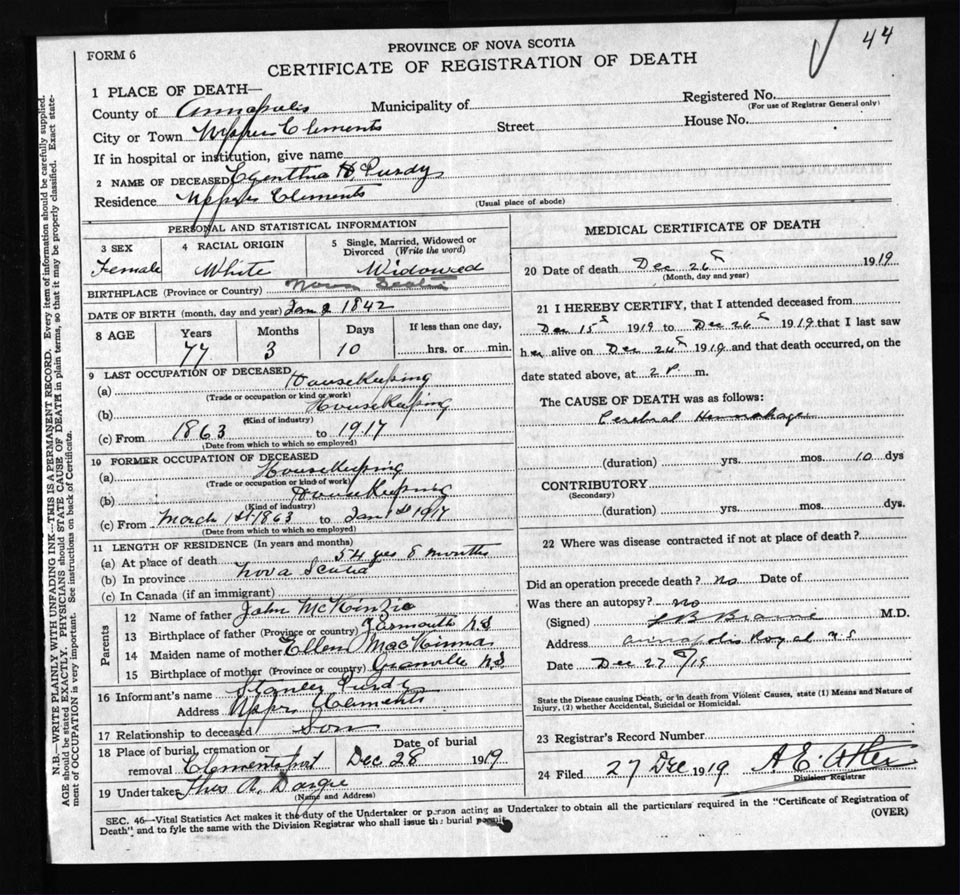 44
FORM 6
PROVINCE OF NOVA SCOTIA
CERTIFICATE OF REGISTRATION OF DEATH
N.B.—WRITE PLAINLY WITH UNFADING INK—THIS IS A PERMANENT RECORD. Every item of information should be carefully supplied.
AGE should be stated EXACTLY. PHYSICIANS should STATE CAUSE OF DEATH in plain terms, so that it may be properly classified. Exact state-
ment of OCCUPATION is very important. See instructions on back of Certificate.
1 PLACE OF DEATH—
County of Annapolis Municipality of
Registered No.
(For use of Registrar General only)
City or Town Upper Clements Street House No.
If in hospital or institution, give name
2 NAME OF DECEASED H Purdy
Residence Upper Clements
(Usual place of abode)
PERSONAL AND STATISTICAL INFORMATION
3 SEX Female
4 RACIAL ORIGIN White
5 Single, Married, Widowed or Divorced (Write the word) Widowed
BIRTHPLACE (Province or Country) Nova Scotia
DATE OF BIRTH (month, day and year) Jan 1842
8 AGE Years 77 Months 3 Days 10 If less than one day, hrs. or min.
9 LAST OCCUPATION OF DECEASED
(a) Housekeeping
(Trade or occupation or kind or work)
(b) Housekeeping
(Kind of industry)
(c) From 1863 to 1917
(Date from which to which so employed)
10 FORMER OCCUPATION OF DECEASED
(a) Housekeeping
(Trade or occupation or kind of work)
(b) Housekeeping
(Kind of industry)
(c) From March 1st 1863 to Jan 1st 1917
(Date from which to which so employed)
11 LENGTH OF RESIDENCE (In years and months)
(a) At place of death 54 yrs 8 months
(b) In province Nova Scotia
(c) In Canada (if an immigrant)
Parents
12 Name of father John McKinzie
13 Birthplace of father (Province or country) Yarmouth N S
14 Maiden name of mother Ellen MacKinna
15 Birthplace of mother (Province or country) Granville N.S.
16 Informant's name Stanley Purdy
Address Upper Clements
17 Relationship to deceased Son
18 Place of burial, cremation or removal Clementsport Date of burial Dec 28 1919
19 Undertaker Thos A.
(Name and Address)
MEDICAL CERTIFICATE OF DEATH
20 Date of death Dec 26th 1919
(Month, day and year)
21 I HEREBY CERTIFY, that I attended deceased from
Dec 15th 1919 to Dec 26th 1919 that I last saw
her alive on Dec 24th 1919 and that death occurred, on the
date stated above, at 2 P m.
The CAUSE OF DEATH was as follows:
Cerebral Hemorrhage
(duration) yrs. mos. 10 dys
CONTRIBUTORY
(Secondary)
(duration) yrs. mos. dys.
22 Where was disease contracted if not at place of death?
Did an operation precede death? no Date of
Was there an autopsy? no
(Signed) L B Braine M.D.
Address Annapolis Royal N S
Date Dec 27th/19
State the Disease causing Death, or in death from Violent Causes, state (1) Means and Nature of
Injury, (2) whether Accidental, Suicidal or Homicidal.
23 Registrar's Record Number
24 Filed 27 Dec 1919 A. E.
Division Registrar
SEC. 46—Vital Statistics Act makes it the duty of the Undertaker or person acting as Undertaker to obtain all the particulars required in the "Certificate of Registration of
Death" and to fyle the same with the Division Registrar who shall issue the burial permit.
(OVER)